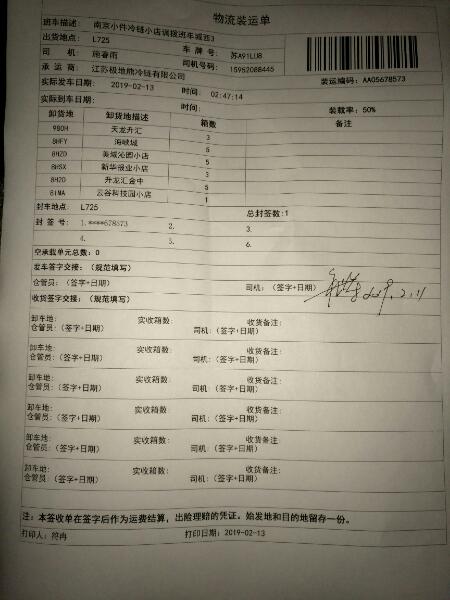 物流装运单
班车描述: 南京小件冷链小店调拨班车城西3
出货地点: L725
司 机: 施春雨 车 牌 号: 苏A91LU8
承 运 商: 江苏极地熊冷链有限公司 司机号码: 15952088445
装运编码: AA05678573
实际发车日期: 2019-02-13 时间: 02:47:14
实际到车日期: 时间: 装载率: 50%
卸货地 卸货地描述 箱数 备注
980H 天龙升汇 3
8HFY 海峡城 5
8HZD 美域沁园小店 5
8HSX 新华报业小店 3
8H2D 升龙汇金中 5
81MA 云谷科技园小店 1
封车地点: L725 总封签数:1
封 签 号: 1.****678573 2. 3.
4. 5. 6.
空承载单元总数: 0
发车签字交接: (规范填写)
仓管员: (签字+日期) 司机: (签字+日期) 2019.2.11
收货签字交接: (规范填写)
卸车地: 实收箱数: 收货备注:
仓管员: (签字+日期) 司机: (签字+日期)
卸车地: 实收箱数: 收货备注:
仓管员: (签字+日期) 司机: (签字+日期)
卸车地: 实收箱数: 收货备注:
仓管员: (签字+日期) 司机: (签字+日期)
卸车地: 实收箱数: 收货备注:
仓管员: (签字+日期) 司机: (签字+日期)
卸车地: 实收箱数: 收货备注:
仓管员: (签字+日期) 司机: (签字+日期)
卸车地: 实收箱数: 收货备注:
仓管员: (签字+日期) 司机: (签字+日期)
注: 本签收单在签字后作为运费结算, 出险理赔的凭证。始发地和目的地留存一份。
打印人: 符冉 打印日期: 2019-02-13